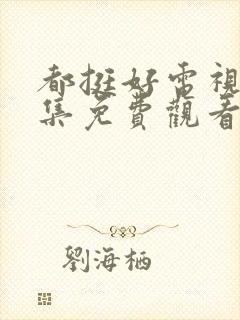 都挺好電視
集免費觀看
劉海栖